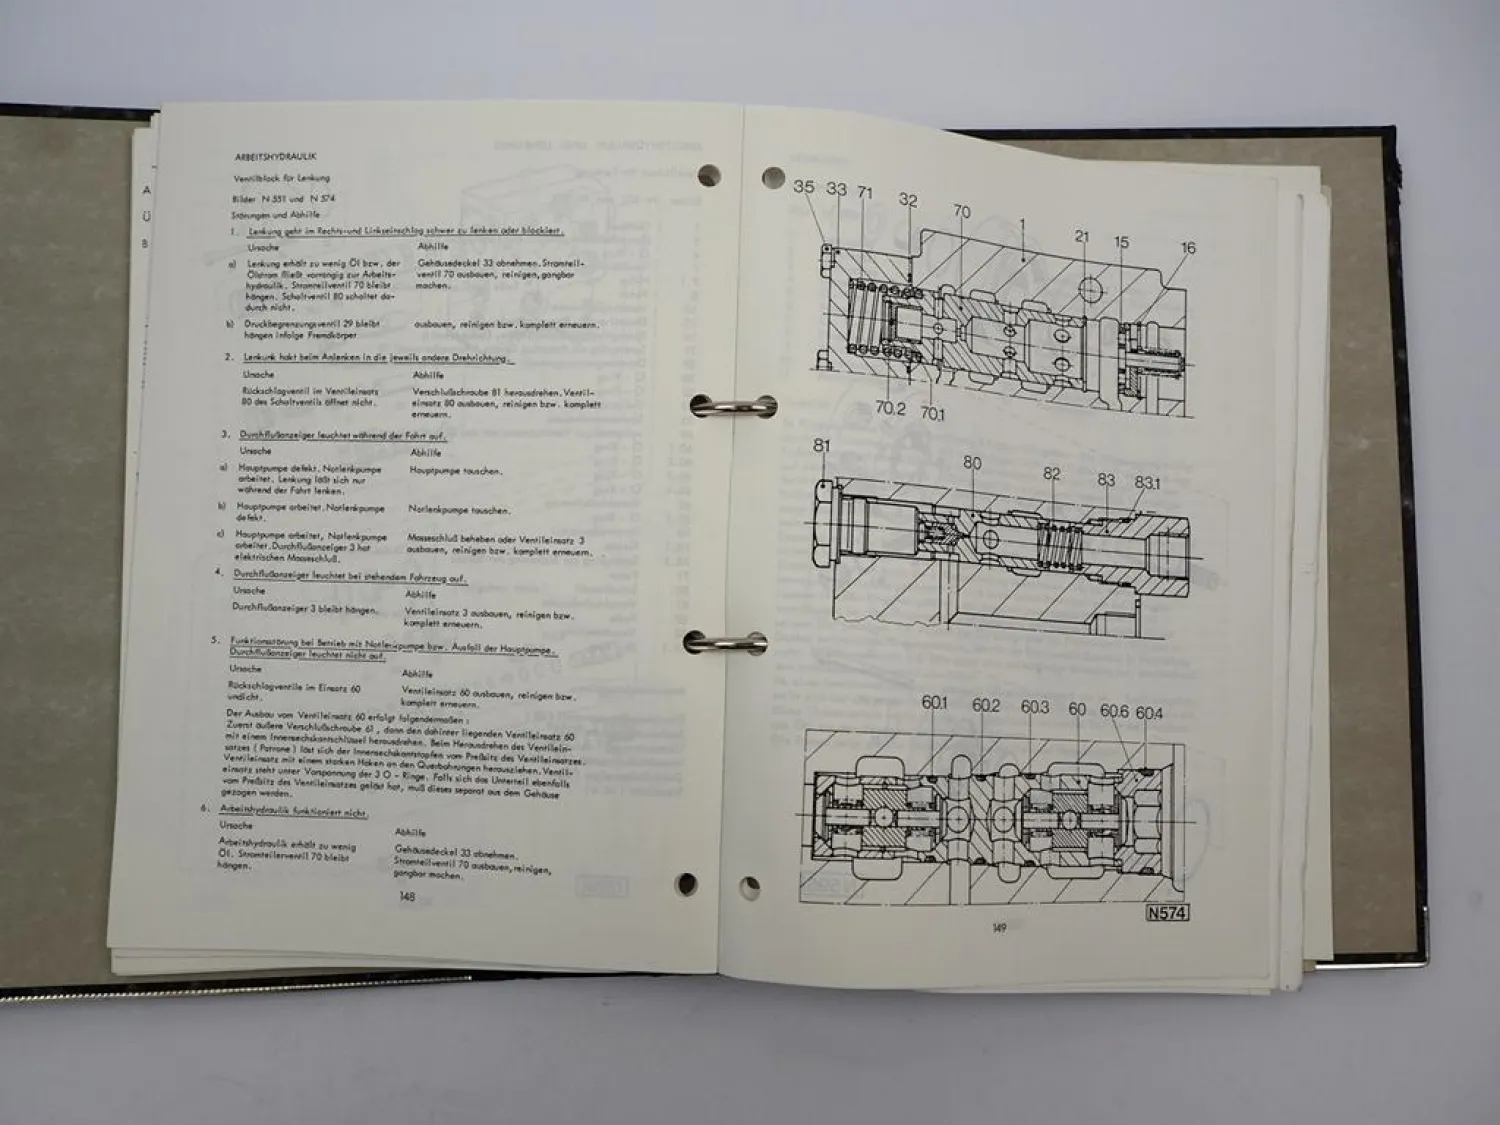 ARBEITSHYDRAULIK
Ventilblock für Lenkung
Bilder N 551 und N 574
Störungen und Abhilfe
1. Lenkung geht im Rechts-und Linkseinschlag schwer zu lenken oder blockiert.
Ursache Abhilfe
a) Lenkung erhält zu wenig Öl bzw. der Gehäusedeckel 33 abnehmen. Stromteil-
Ölstrom fließt vorrangig zur Arbeits- ventil 70 ausbauen, reinigen, gangbar
hydraulik. Stromteilventil 70 bleibt machen.
hängen. Schaltventil 80 schaltet da-
durch nicht.
b) Druckbegrenzungsventil 29 bleibt ausbauen, reinigen bzw. komplett erneuern.
hängen infolge Fremdkörper
2. Lenkunk hakt beim Anlenken in die jeweils andere Drehrichtung.
Ursache Abhilfe
Rückschlagventil im Ventileinsatz Verschlußschraube 81 herausdrehen. Ventil-
80 des Schaltventils öffnet nicht. einsatz 80 ausbauen, reinigen bzw. komplett
erneuern.
3. Durchflußanzeiger leuchtet während der Fahrt auf.
Ursache Abhilfe
a) Hauptpumpe defekt. Notlenkpumpe Hauptpumpe tauschen.
arbeitet. Lenkung läßt sich nur
während der Fahrt lenken.
b) Hauptpumpe arbeitet. Notlenkpumpe Notlenkpumpe tauschen.
defekt.
c) Hauptpumpe arbeitet, Notlenkpumpe Masseschluß beheben oder Ventileinsatz 3
arbeitet. Durchflußanzeiger 3 hat ausbauen, reinigen bzw. komplett erneuern.
elektrischen Masseschluß.
4. Durchflußanzeiger leuchtet bei stehendem Fahrzeug auf.
Ursache Abhilfe
Durchflußanzeiger 3 bleibt hängen. Ventileinsatz 3 ausbauen, reinigen bzw.
komplett erneuern.
5. Funktionsstörung bei Betrieb mit Notlenkpumpe bzw. Ausfall der Hauptpumpe.
Durchflußanzeiger leuchtet nicht auf.
Ursache Abhilfe
Rückschlagventile im Einsatz 60 Ventileinsatz 60 ausbauen, reinigen bzw.
undicht. komplett erneuern.
Der Ausbau vom Ventileinsatz 60 erfolgt folgendermaßen :
Zuerst äußere Verschlußschraube 61 , dann den dahinter liegenden Ventileinsatz 60
mit einem Innensechskantschlüssel herausdrehen. Beim Herausdrehen des Ventilein-
satzes ( Patrone ) löst sich der Innensechskantstopfen vom Preßsitz des Ventileinsatzes.
Ventileinsatz mit einem starken Haken an den Querbohrungen herausziehen. Ventil-
einsatz steht unter Vorspannung der 3 O - Ringe. Falls sich das Unterteil ebenfalls
vom Preßsitz des Ventileinsatzes gelöst hat, muß dieses separat aus dem Gehäuse
gezogen werden.
6. Arbeitshydraulik funktioniert nicht.
Ursache Abhilfe
Arbeitshydraulik erhält zu wenig Gehäusedeckel 33 abnehmen.
Öl. Stromteilerventil 70 bleibt Stromteilventil 70 ausbauen, reinigen,
hängen. gangbar machen.
148
A
Ü
B
35 33 71 32 70 1 21 15 16
70.2 70.1
81 80 82 83 83.1
60.1 60.2 60.3 60 60.6 60.4
N574
149